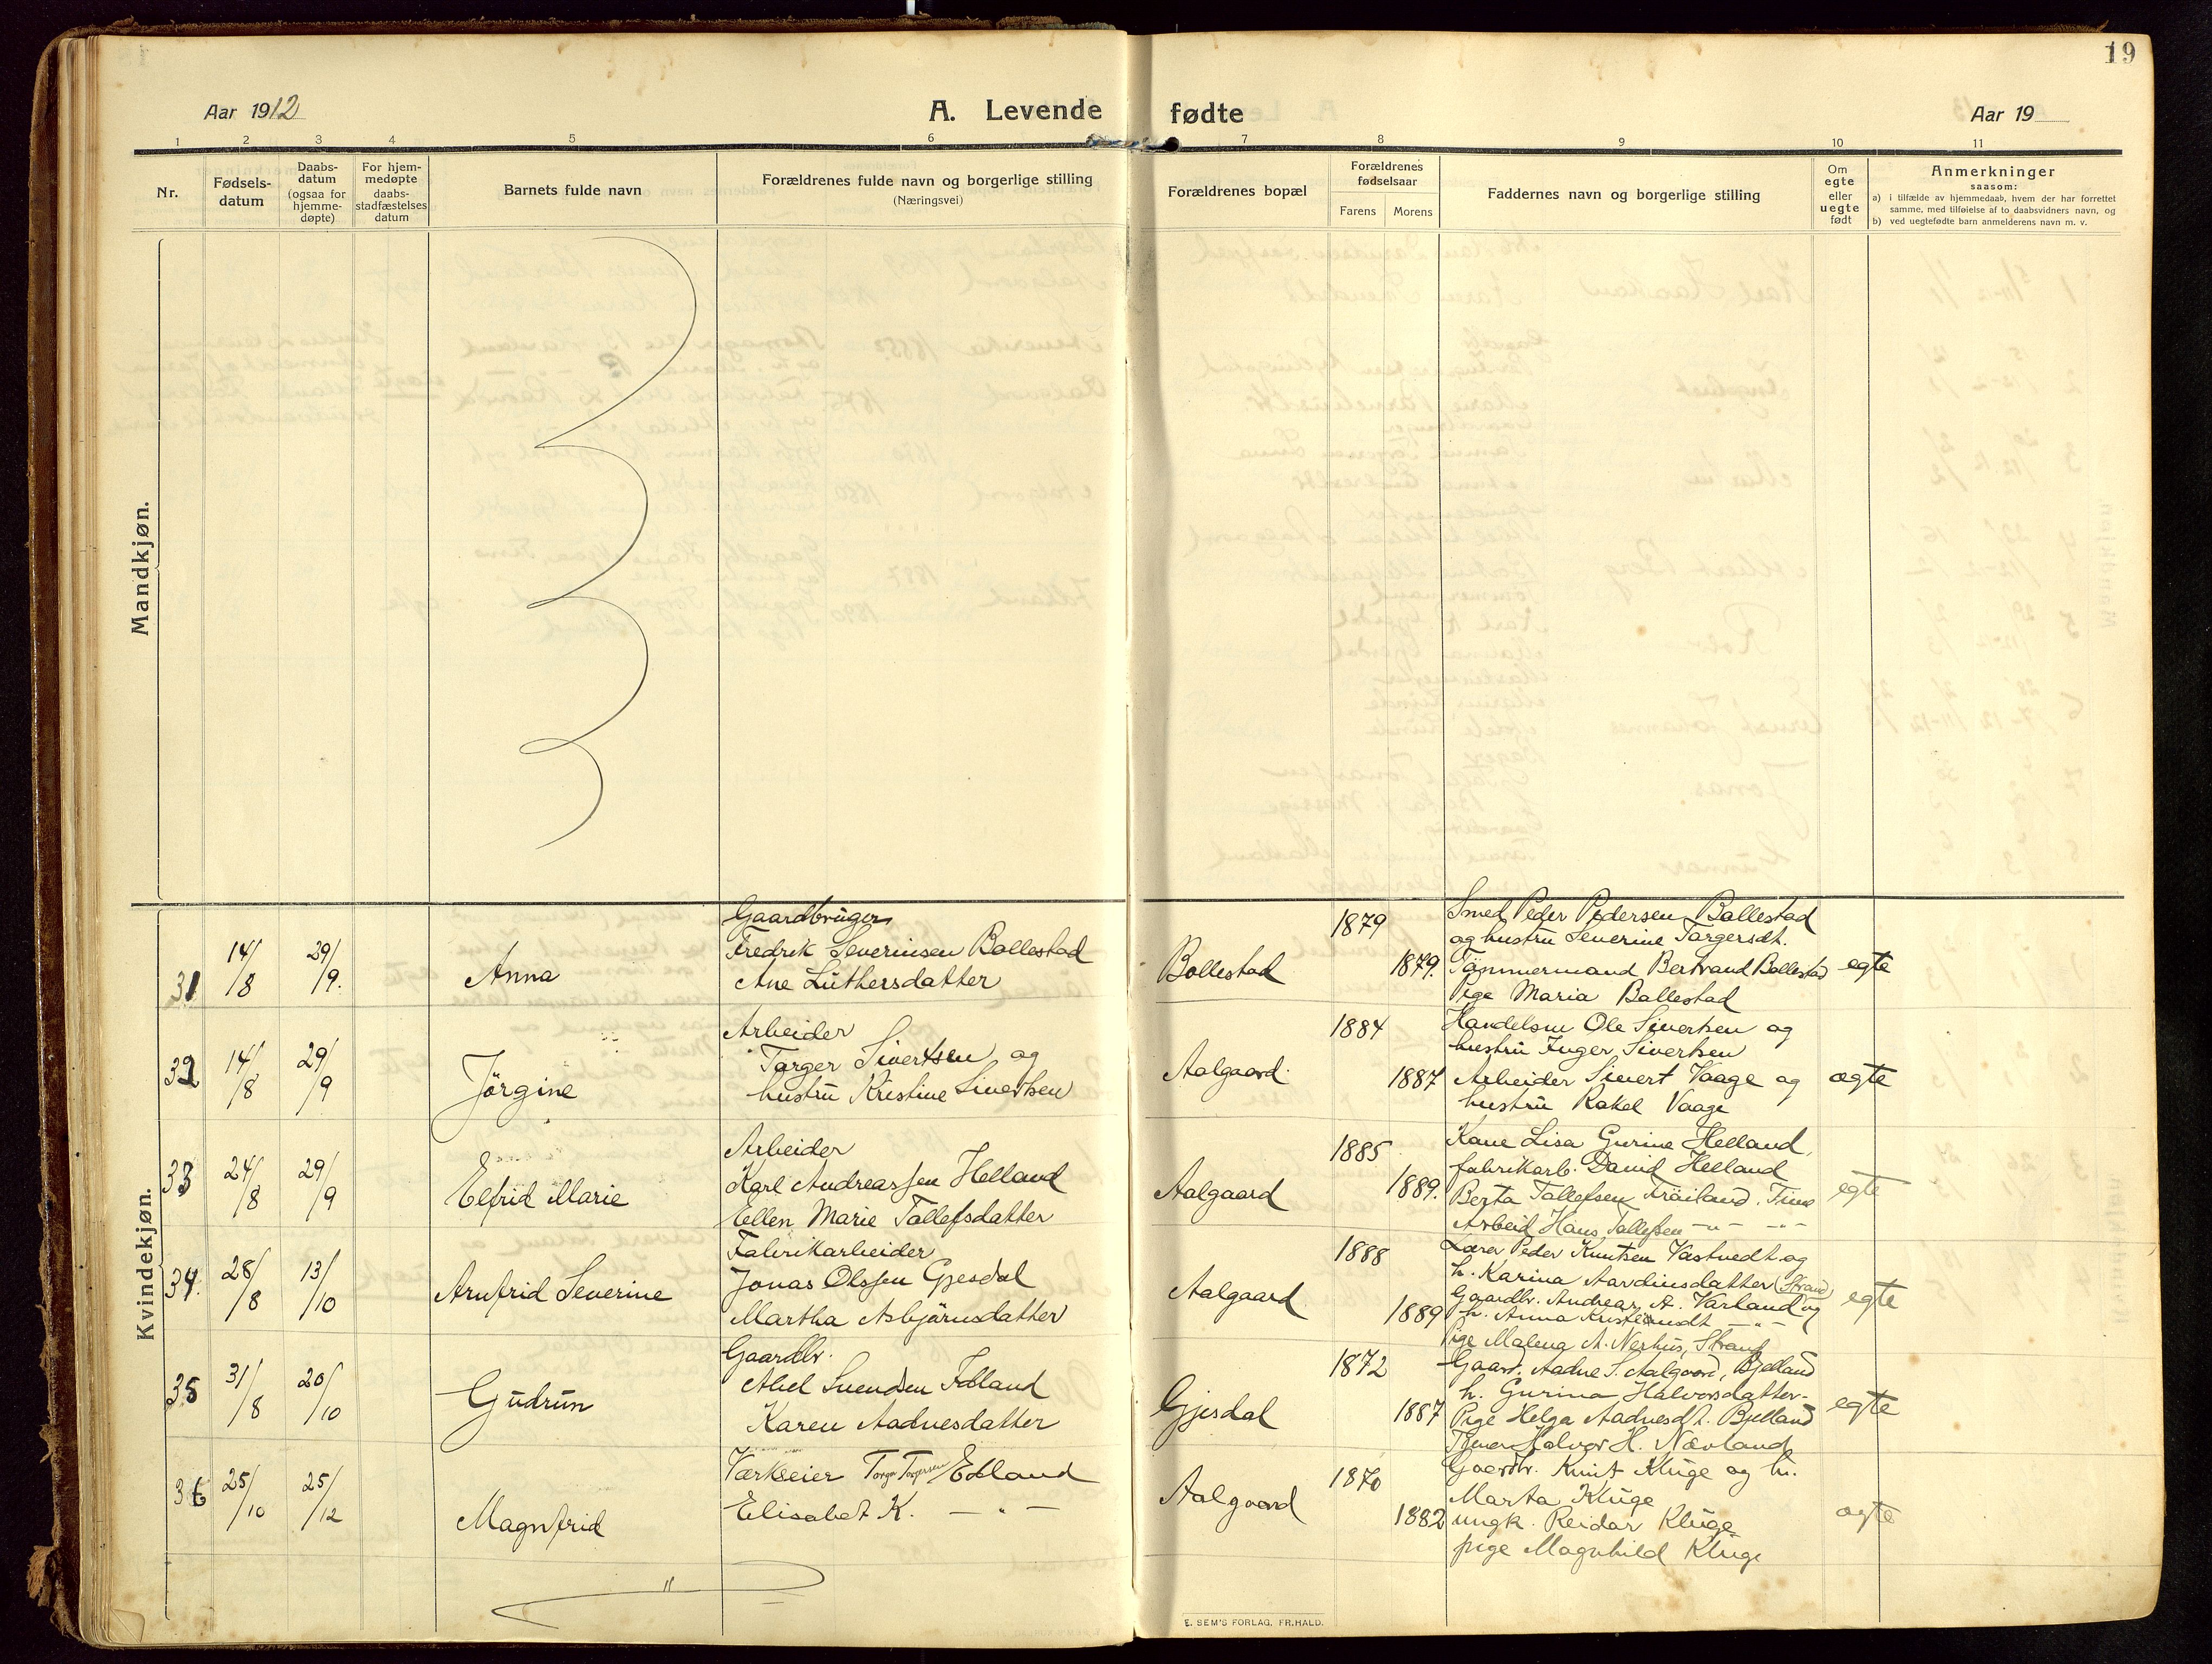 19
Aar 1912
A. Levende fødte
Aar 19
1 2 3 4 5 6 7 8 9 10 11
Nr.
Fødsels-
datum
Daabs-
datum
(ogsaa for
hjemme-
døpte)
For hjem-
medøpte
daabs-
stadfæstelses
datum
Barnets fulde navn
Forældrenes fulde navn og borgerlige stilling
(Næringsvei)
Forældrenes bopæl
Forældrenes
fødselsaar
Farens Morens
Faddernes navn og borgerlige stilling
Om
egte
eller
uegte
født
Anmerkninger
saasom:
a) i tilfælde av hjemmedaab, hvem der har forrettet
samme, med tilføielse af to daabsvidners navn, og
b) ved uegtefødte barn anmelderens navn m. v.
Mandkjøn.
Kvindekjøn.
31 14/8 29/9. Anna
Gaardbruger
Fredrik Severinsen Bollestad
Ane Luthersdatter
Bollestad
1879
1879.
Smed Peder Pedersen Bollestad
og hustru Severine Torgersdt.
Tömmermand Bertrand Bollestad
Pige Maria Bollestad
egte
32 14/8 29/9 Jörgine
Arbeider
Torger Sivertsen og
hustru Kristine Sivertsen
Aalgaard.
1884
1887
Handelsm Ole Sivertsen og
hustru Inger Sivertsen
Arbeider Sivert Vaage og
hustru Rakel Vaage
egte
33 24/8 29/9 Elfrid Marie
Arbeider
Karl Andreassen Helland
Ellen Marie Tollefsdatter
Aalgaard
1885
1889.
Kone Lisa Gurine Helland,
fabrikarb. David Helland
Berta Tollefsen Fröiland. Time
Arbeid Hans Tollefsen — " — — " —
egte
34. 28/8 13/10 Arnfrid Severine
Fabrikarbeider
Jonas Olsen Gjesdal
Martha Asbjørnsdatter
Aalgaard
1888
1889
Lærer Peder Knutsen Vastvedt og
h. Karina Aardinsdatter (Strand)
Gaardbr. Andreas A. Varland og
h. Anna Kristiansdt — " —
Pige Malena A. Neshus, Strand
egte
35 31/8 20/10 Gudrun
Gaardbr.
Abel Svendsen Edland
Karen Aadnesdatter
Gjesdal
1872
1887
Gaardbr. Aadne S. Aalgaard, Bjelland
h. Gurina Halvorsdatter -
Pige Helga Aadnesdt. Bjelland
Halvor H. Nævland
egte
36 25/10 25/12 Magnfrid
Værkseier Torger Torgersen Edland
Elisabet K. — " —
Aalgaard
1870
1882
Gaardbr. Knut Kluge og h.
Marta Kluge
ungk. Reidar Kluge
pige Magnhild Kluge
egte
"
E. SEM'S FORLAG, FR.HALD.